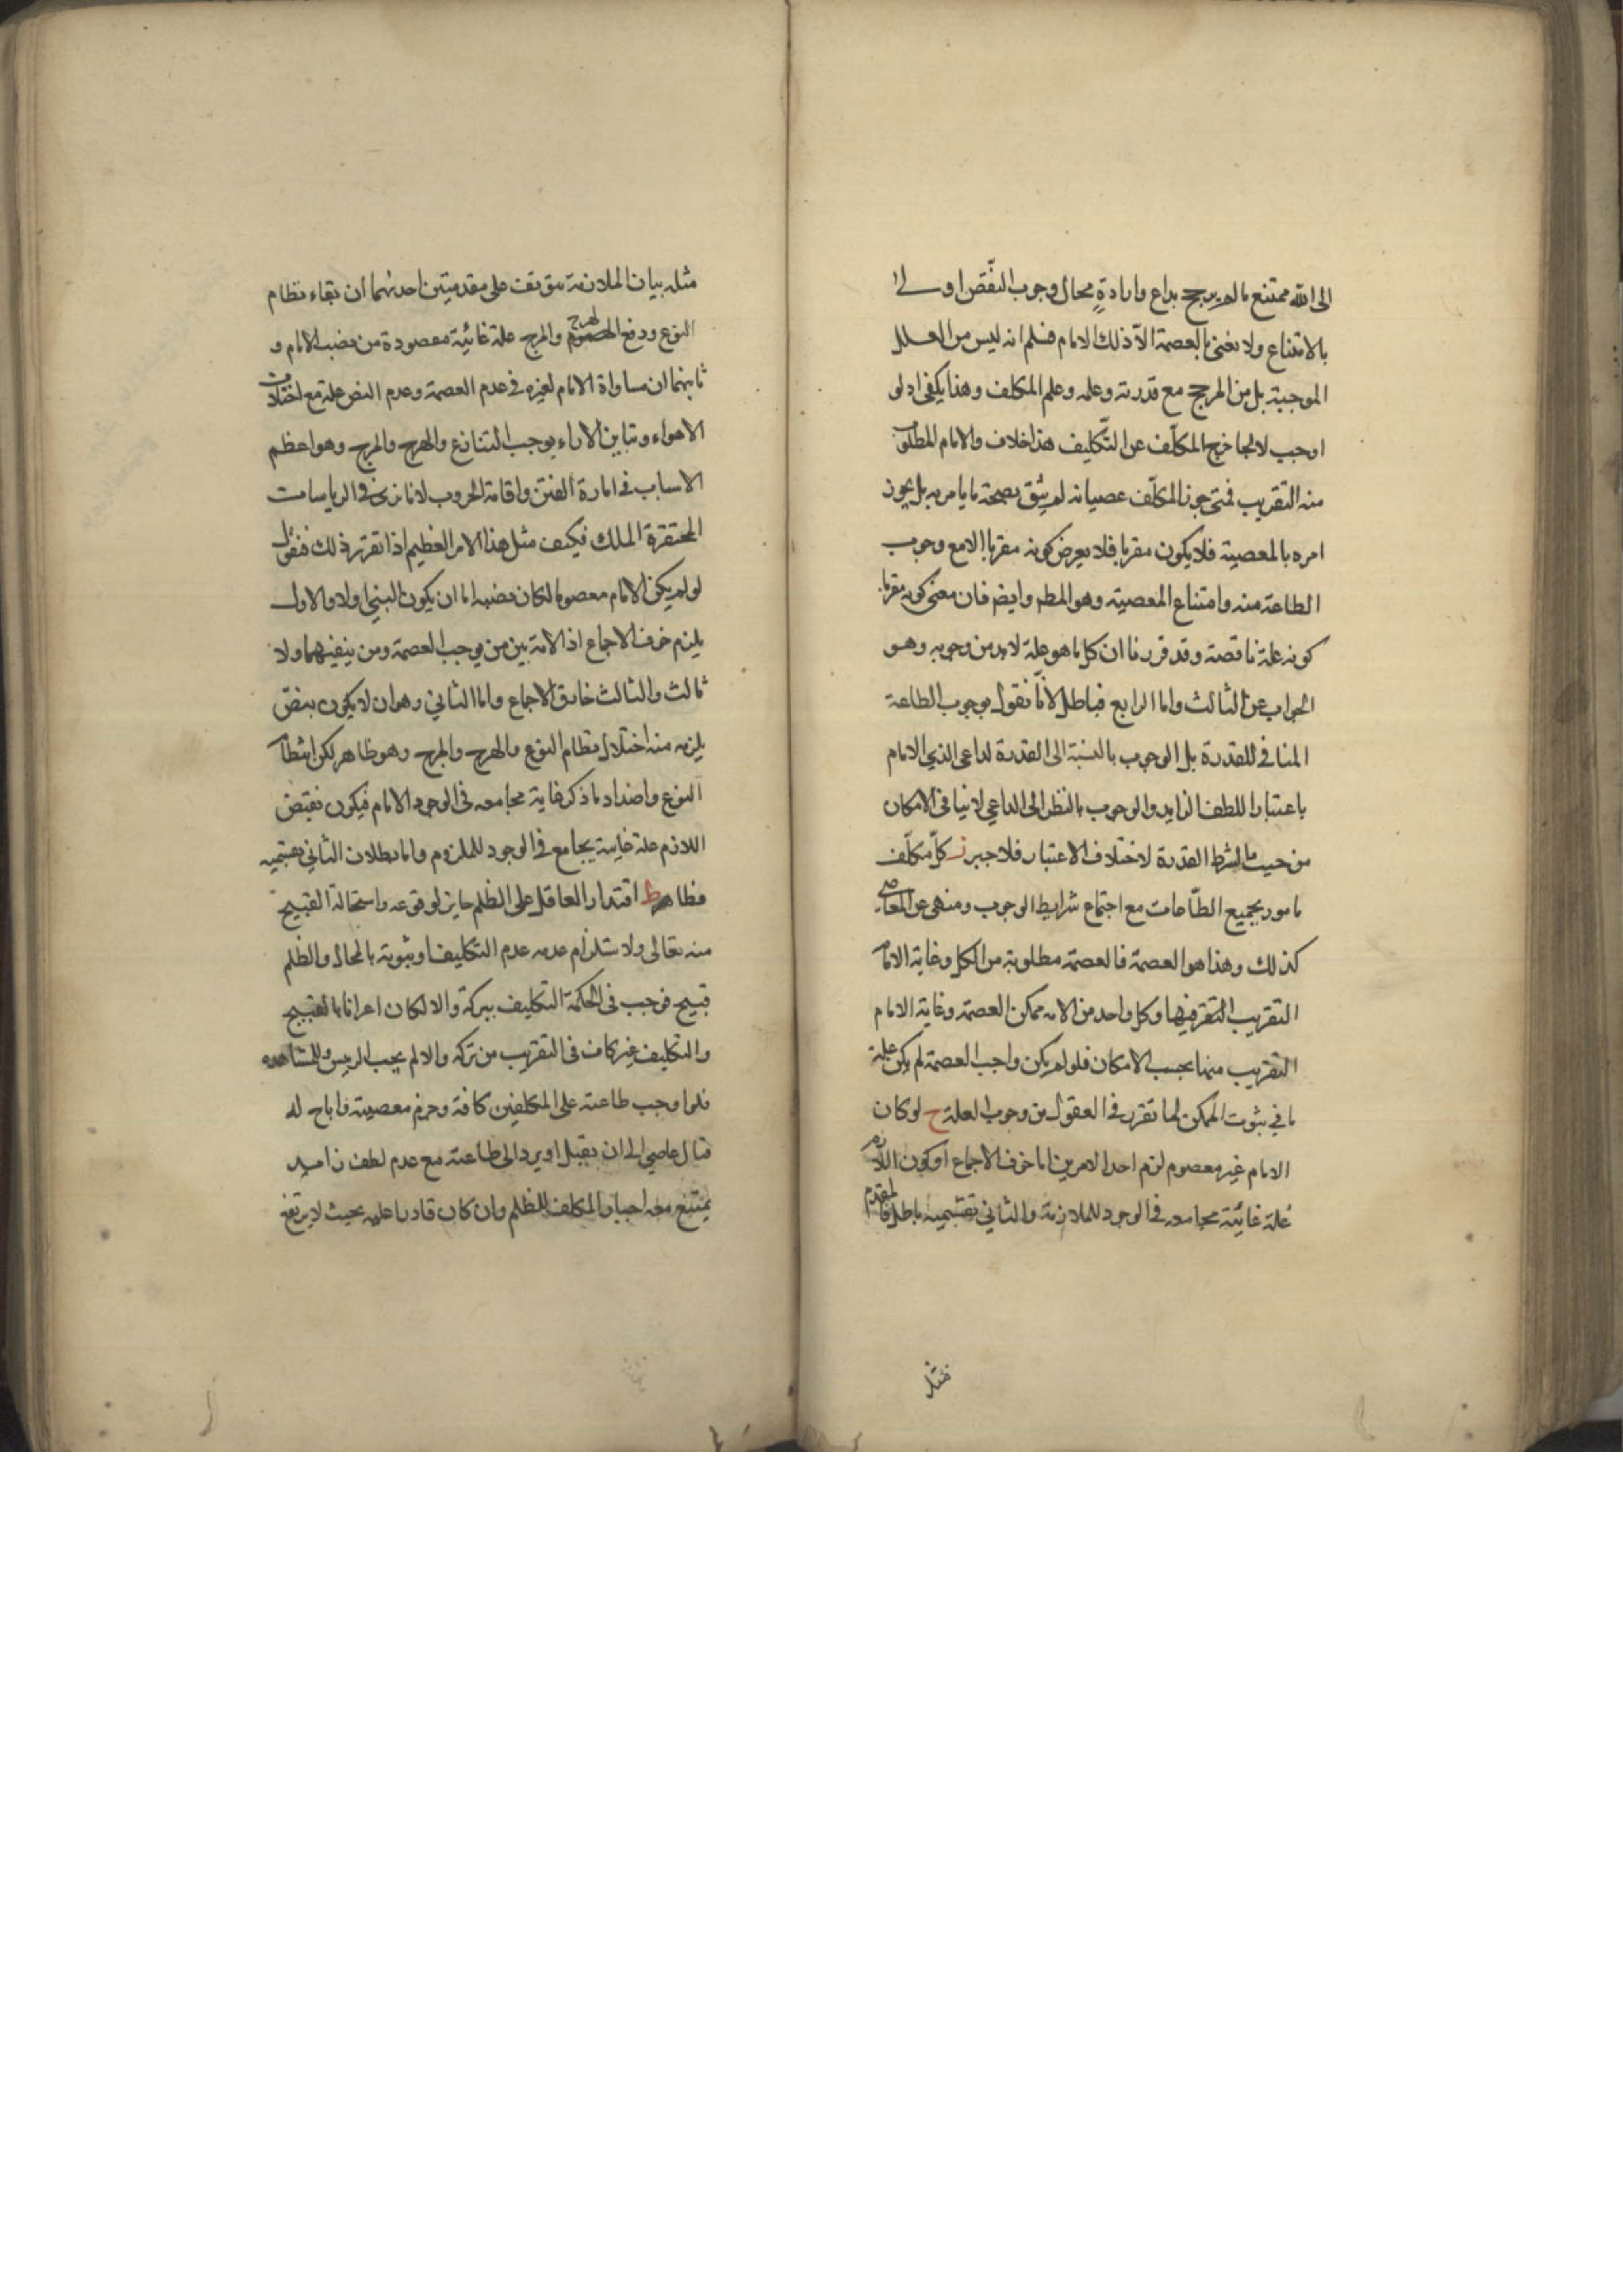 الى الله ممتنع مالم يرجح بداع وارادةٍ محال وجوب النّقص اولى
بالامتناع ولا نعنى بالعصمة الاّ ذلك الامام فلم انه ليس من العلل
الموجبة بل من المرجح مع قدرته وعلمه وعلم المكلف وهذا يكفى اذ لو
اوجب لالجا خرج المكلّف عن التّكليف هذا خلاف والامام المطلوب
منه التقريب فمتى جوز المكلّف عصيانه لم يثق بصحة ما يامر به بل يجوز
امره بالمعصية فلا يكون مقربا فلا يعرض كونه مقربا الا مع وجوب
الطاعة منه وامتناع المعصية وهو المطم وايضم فان معنى كونه مقربا
كونه علة ناقصة وقد قررنا ان كل ما هو علة لابد من وجوبه وهو
الجواب عن الثالث واما الرابع فباطل لانّا نقول بوجوب الطاعة
المنافى للقدرة بل الوجوب بالنسبة الى القدرة لداعى الذي الامام
باعتبار اللطف الزايد والوجوب بالنظر الى الداعي لا ينافى الامكان
من حيث ما لشرط القدرة لاختلاف الاعتبار فلا جبر ز كلّ مكلّف
مامور بجميع الطّاعات مع اجتماع شرايط الوجوب ومنهى عن المعاصي
كذلك وهذا هو العصمة فالعصمة مطلوبة من الكل وغاية الامام
التقريب التقر فيها وكل واحد من الامه ممكن العصمة وغاية الامام
التقريب منها بحسب الامكان فلو لم يكن واجب العصمة لم يكن علة
مافي ثبوت الممكن لما تقرر فى العقول من وجوب العلة ح لو كان
الامام غير معصوم لزم احد الامرين اما خرق الاجماع او كون اللازم
علة غائية مجامعه فى الوجود للملازمة والثاني بقسميه باطل فالمقدم
مثله
مثله بيان الملازمة يتوقف على مقدمتين احدهما ان بقاء نظام
النوع ودفع الهرج والمرج علة غائية مقصودة من نصب الامام و
ثانيهما ان مساواة الامام لغيره فى عدم العصمة وعدم النص عليه مع اختلاف
الاهواء وتباين الاراء يوجب التنازع والهرج والمرج وهو اعظم
الاسباب فى اثارة الفتن واقامة الحروب لانا نرى فى الرياسات
المحتقرة الملك فكيف مثل هذا الامر العظيم اذا تقرر ذلك فنقول
لو لم يكن الامام معصوما لكان نصبه اما ان يكون البني اولا والاول
يلزم خرق الاجماع اذ الامة بين من يوجب العصمة ومن ينفيهما ولا
ثالث والثالث خارق الاجماع واما الثاني وهو ان لا يكون بنص
يلزم منه اختلال نظام النوع والهرج والمرج وهو ظاهر لكن انتظام
النوع واضداد ما ذكر غاية مجامعه فى الوجود الامام فيكون نقيض
اللازم علة غايية يجامع فى الوجود للملزوم واما بطلان الثاني بقسميه
فظاهر ط اقتدار العاقل على الظلم جايز لوقوعه واستحالة القبيح
منه تعالى ولاستلزام عدمه عدم التكليف او ثبوته بالمحال والظلم
قبيح فوجب فى الحكمة التكليف بتركه والا لكان اغراءا بالقبيح
والتكليف غير كاف فى التقريب من تركه والا لم يجب الريس وللمشاهده
فلو اوجب طاعته على المكلفين كافة وحرم معصيته واباح له
قتال عاصي الى ان يقبل او يرد الى طاعته مع عدم لطف زايد
يمتنع معه اجبار المكلف للظلم وان كان قادرا عليه بحيث لا يرتفع